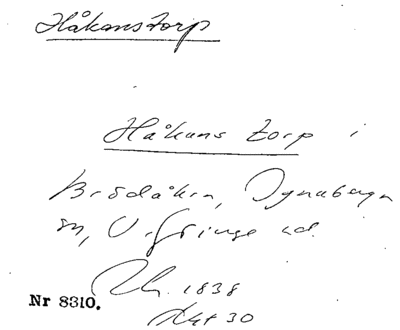 Håkanstorp
Håkans torp i
Brödåkra, Ognaberga
sn, V. Göinge hd.
Lh. 1838
Akt 30
Nr 8310.